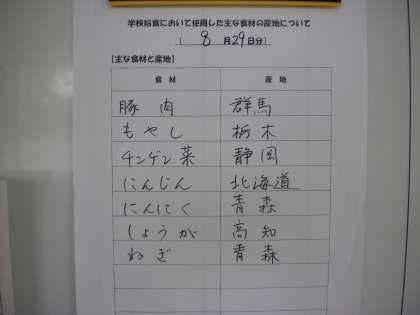 学校給食において使用した主な食材の産地について
( 8月29日分)
【主な食材と産地】
食材 産地
豚肉 群馬
もやし 栃木
チンゲン菜 静岡
にんじん 北海道
にんにく 青森
しょうが 高知
ねぎ 青森